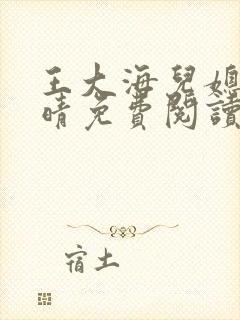 王大海兒媳
晴免費閱讀
宿土